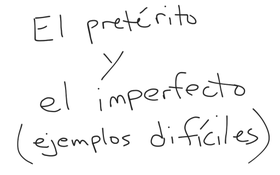 El pretérito
y
el imperfecto
(ejemplos difíciles)